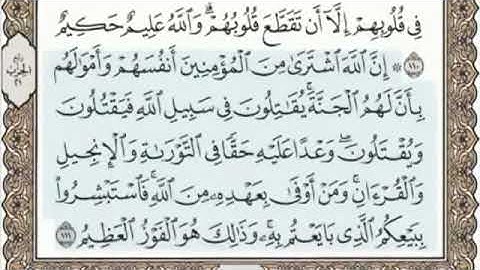 فِي قُلُوبِهِمْ إِلَّآ أَن تَقَطَّعَ قُلُوبُهُمْ ۗ وَٱللَّهُ عَلِيمٌ حَكِيمٌ
١١٠ ۞ إِنَّ ٱللَّهَ ٱشْتَرَىٰ مِنَ ٱلْمُؤْمِنِينَ أَنفُسَهُمْ وَأَمْوَٰلَهُم
بِأَنَّ لَهُمُ ٱلْجَنَّةَ ۚ يُقَٰتِلُونَ فِي سَبِيلِ ٱللَّهِ فَيَقْتُلُونَ
وَيُقْتَلُونَ ۖ وَعْدًا عَلَيْهِ حَقًّا فِي ٱلتَّوْرَىٰةِ وَٱلْإِنجِيلِ
وَٱلْقُرْءَانِ ۚ وَمَنْ أَوْفَىٰ بِعَهْدِهِۦ مِنَ ٱللَّهِ ۚ فَٱسْتَبْشِرُوا۟
بِبَيْعِكُمُ ٱلَّذِي بَايَعْتُم بِهِۦ ۚ وَذَٰلِكَ هُوَ ٱلْفَوْزُ ٱلْعَظِيمُ ١١١
الحزب
٢١